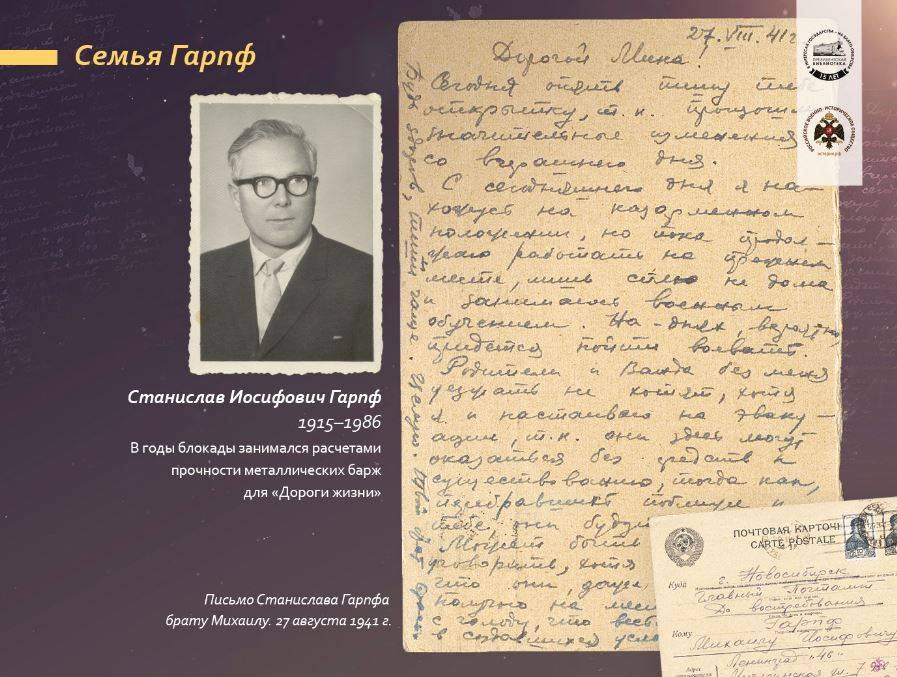 Семья Гарпф
Станислав Иосифович Гарпф
1915–1986
В годы блокады занимался расчетами
прочности металлических барж
для «Дороги жизни»
Письмо Станислава Гарпфа
брату Михаилу. 27 августа 1941 г.
27.VIII.41г
Дорогой Миша!
Сегодня опять пишу тебе
открытку, т.к. произошли
значительные изменения
со вчерашнего дня.
С сегодняшнего дня я на-
хожусь на казарменном
положении, но пока продол-
жаю работать на прежнем
месте, лишь сплю не дома
и занимаюсь военным
обучением. На-днях, вероятно,
придется пойти воевать.
Родители и Ванда без меня
уезжать не хотят, хотя
я и настаиваю на эваку-
ации, т.к. они здесь могут
оказаться без средств к
существованию, тогда как,
перебравшись поближе к
тебе, они будут
Может быть
уговорить, хотя
что они, даже
получую на мес
с голоду, что вес
в создавшихся усло
Будь здоров, пиши чаще. Целую. Твой брат
ПРЕЗИДЕНТСКАЯ
БИБЛИОТЕКА
15 ЛЕТ
РОССИЙСКОЕ ВОЕННО-ИСТОРИЧЕСКОЕ ОБЩЕСТВО
ПОЧТОВАЯ КАРТОЧК
CARTE POSTALE
Куда г. Новосибирск
Главный Почтамт
До востребования
Кому Гарпф
Михаилу Иосифовичу
Адрес
Ленинград "46"